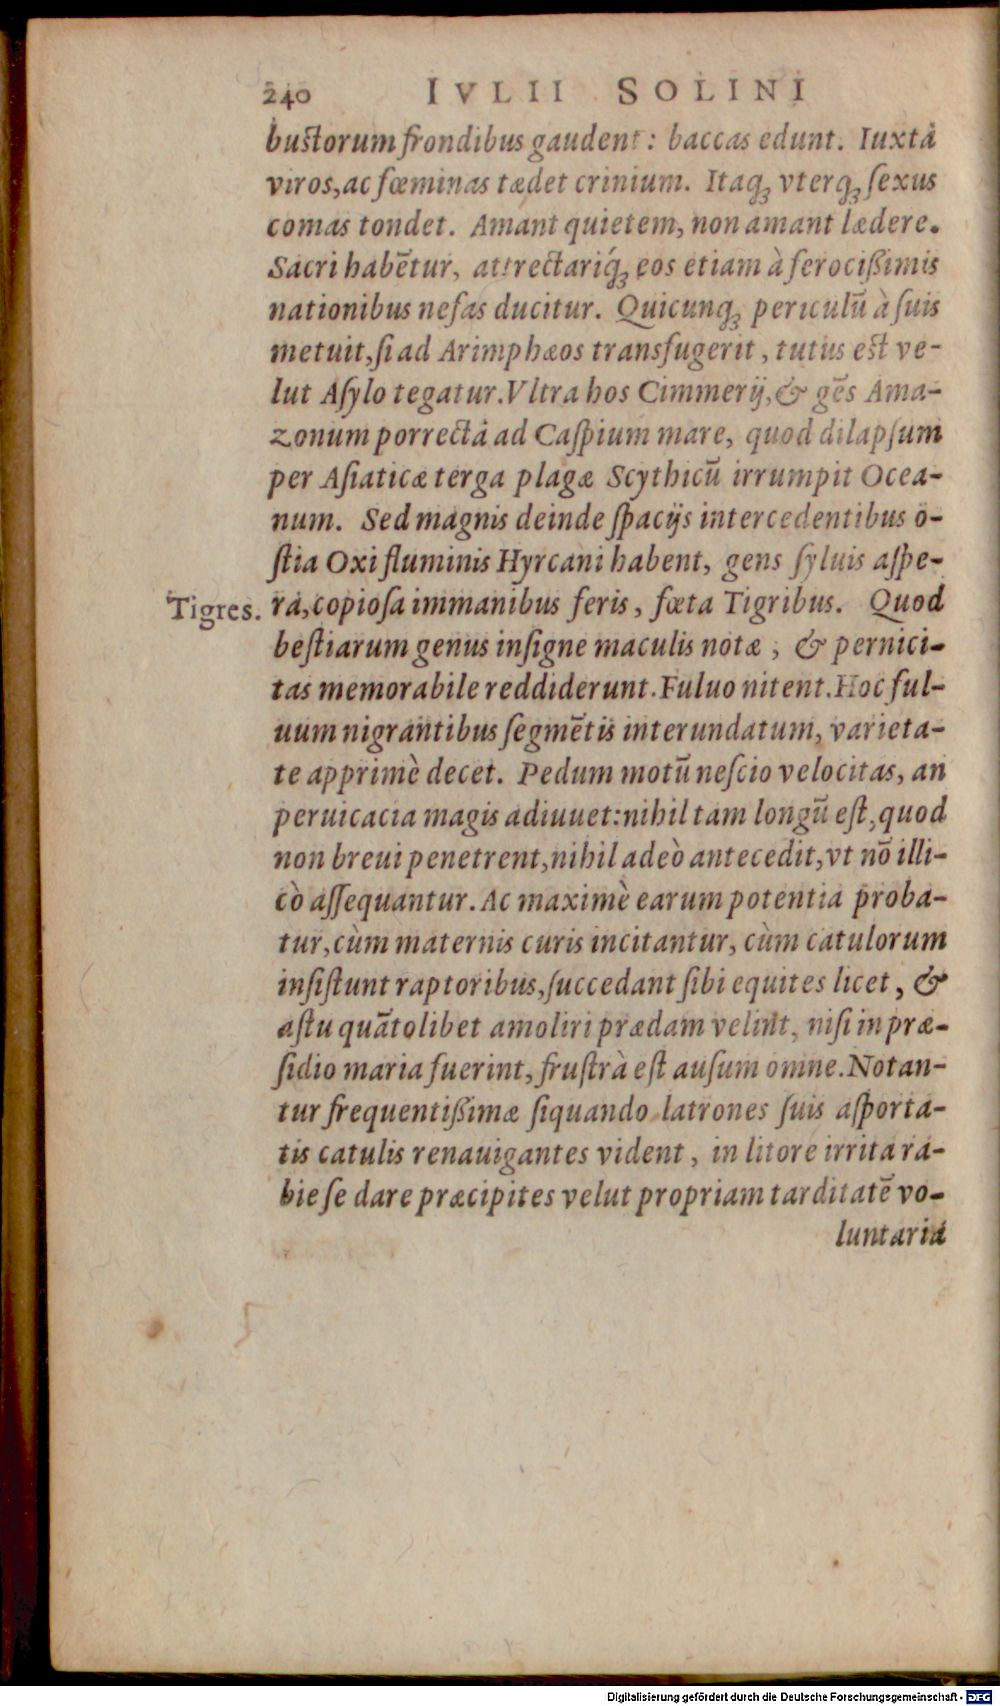 240 IVLII SOLINI
bustorum frondibus gaudent: baccas edunt. Iuxtà
viros, ac fœminas tædet crinium. Itaqꝫ vterqꝫ ſexus
comas tondet. Amant quietem, non amant lædere.
Sacri habẽtur, attrectaríqꝫ eos etiam à ferocißimis
nationibus nefas ducitur. Quicunqꝫ periculũ à ſuis
metuit, ſi ad Arimphæos transfugerit, tutus eſt ve-
lut Aſylo tegatur. Vltra hos Cimmerij, & gẽs Ama-
zonum porrecta ad Caſpium mare, quod dilapſum
per Aſiaticæ terga plagæ Scythicũ irrumpit Ocea-
num. Sed magnis deinde ſpacijs intercedentibus o-
ſtia Oxi fluminis Hyrcani habent, gens ſyluis aſpe-
Tigres. ra, copioſa immanibus feris, fœta Tigribus. Quod
beſtiarum genus inſigne maculis notæ, & pernici-
tas memorabile reddiderunt. Fuluo nitent. Hoc ful-
uum nigrantibus ſegmẽtis interundatum, varieta-
te apprimè decet. Pedum motũ neſcio velocitas, an
peruicacia magis adiuuet: nihil tam longũ eſt, quod
non breui penetrent, nihil adeò antecedit, vt nõ illi-
cò aſſequantur. Ac maximè earum potentia proba-
tur, cùm maternis curis incitantur, cùm catulorum
inſiſtunt raptoribus, ſuccedant ſibi equites licet, &
aſtu quãtolibet amoliri prædam velint, niſi in præ-
ſidio maria fuerint, fruſtrà eſt auſum omne. Notan-
tur frequentißimæ ſiquando latrones ſuis aſporta-
tis catulis renauigantes vident, in litore irrita ra-
bie ſe dare præcipites velut propriam tarditatẽ vo-
luntaria
Digitalisierung gefördert durch die Deutsche Forschungsgemeinschaft - DFG